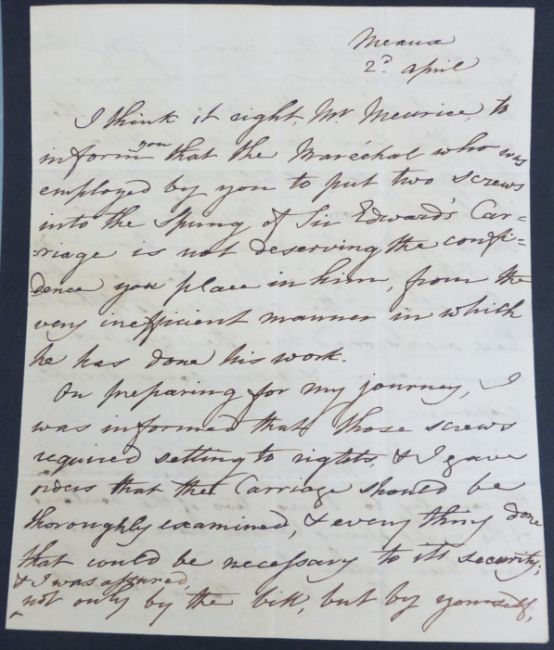 Meaux
2d April
I think it right, Mr Meurice, to
inform you that the Maréchal who was
employed by you to put two screws
into the Spring of Sir Edward's Car=
=riage is not deserving the confi=
dence you place in him, from the
very inefficient manner in which
he has done his work.
On preparing for my journey, I
was informed that those screws
required setting to rights, & I gave
orders that the Carriage should be
thoroughly examined, & every thing done
that would be necessary to its security;
& I was assured,
not only by the bill, but by yourself,